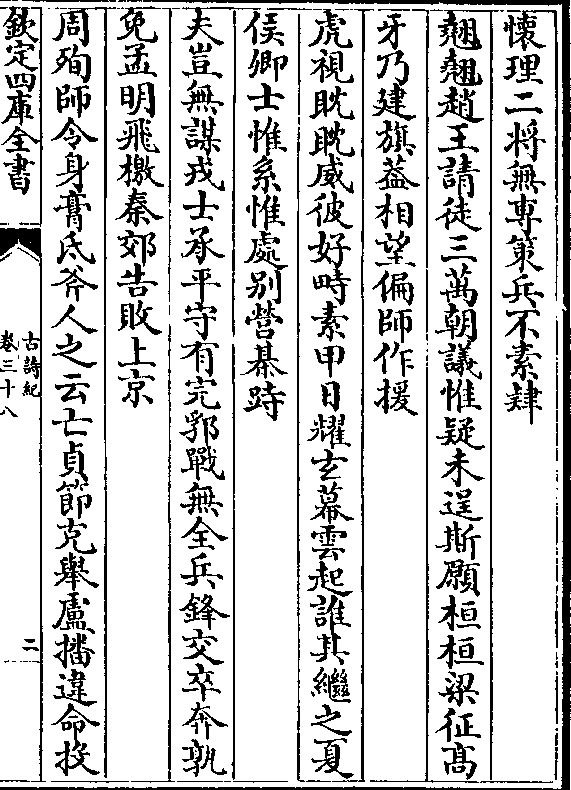 懷理二將無專策兵不素肄
翹翹趙王請徒三萬朝議惟疑未逞斯願桓桓梁征髙
牙乃建旗葢相望偏師作援
虎視眈眈威彼好畤素甲日耀玄幕雲起誰其繼之夏
侯卿士惟系惟處别營棊跱
夫豈無謀戎士承平守有完郛戰無全兵鋒交卒奔孰
免孟明飛檄秦郊告敗上京
周殉師令身膏氐斧人之云亡貞節克舉盧播違命投
欽定四庫全書
古詩紀
卷三十八
二